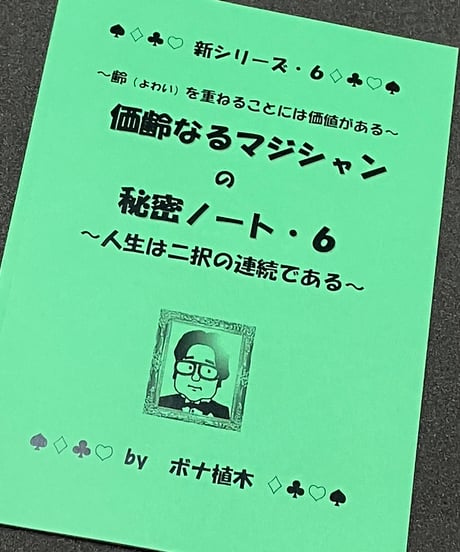 ♠♢♣♡ 新シリーズ・6♢♣♡♠
～齢（よわい）を重ねることには価値がある～
価齢なるマジシャン
の
秘密ノート・6
～人生は二択の連続である～
♠♢♣♡ by ボナ植木 ♢♣♡♠